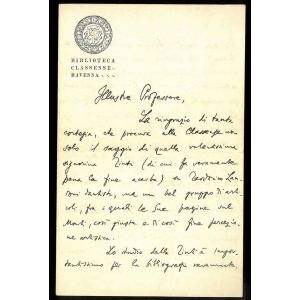 BIBLIOTECA
CLASSENSE
RAVENNA
Illustre Professore,
La ringrazio di tanta
cortesia, che procura alla Classense non
solo il saggio di quella valentissima
signorina Tinti (di cui fa veramente
pena la fine acerba) su Teodorico Lan-
doni dantista, ma un bel gruppo d'arti-
coli, fra i quali le Sue pagine sul
Monti, così giuste e di così fine percezio-
ne artistica.
Lo studio della Tinti è impor-
tantissimo per la bibliografia ravennate